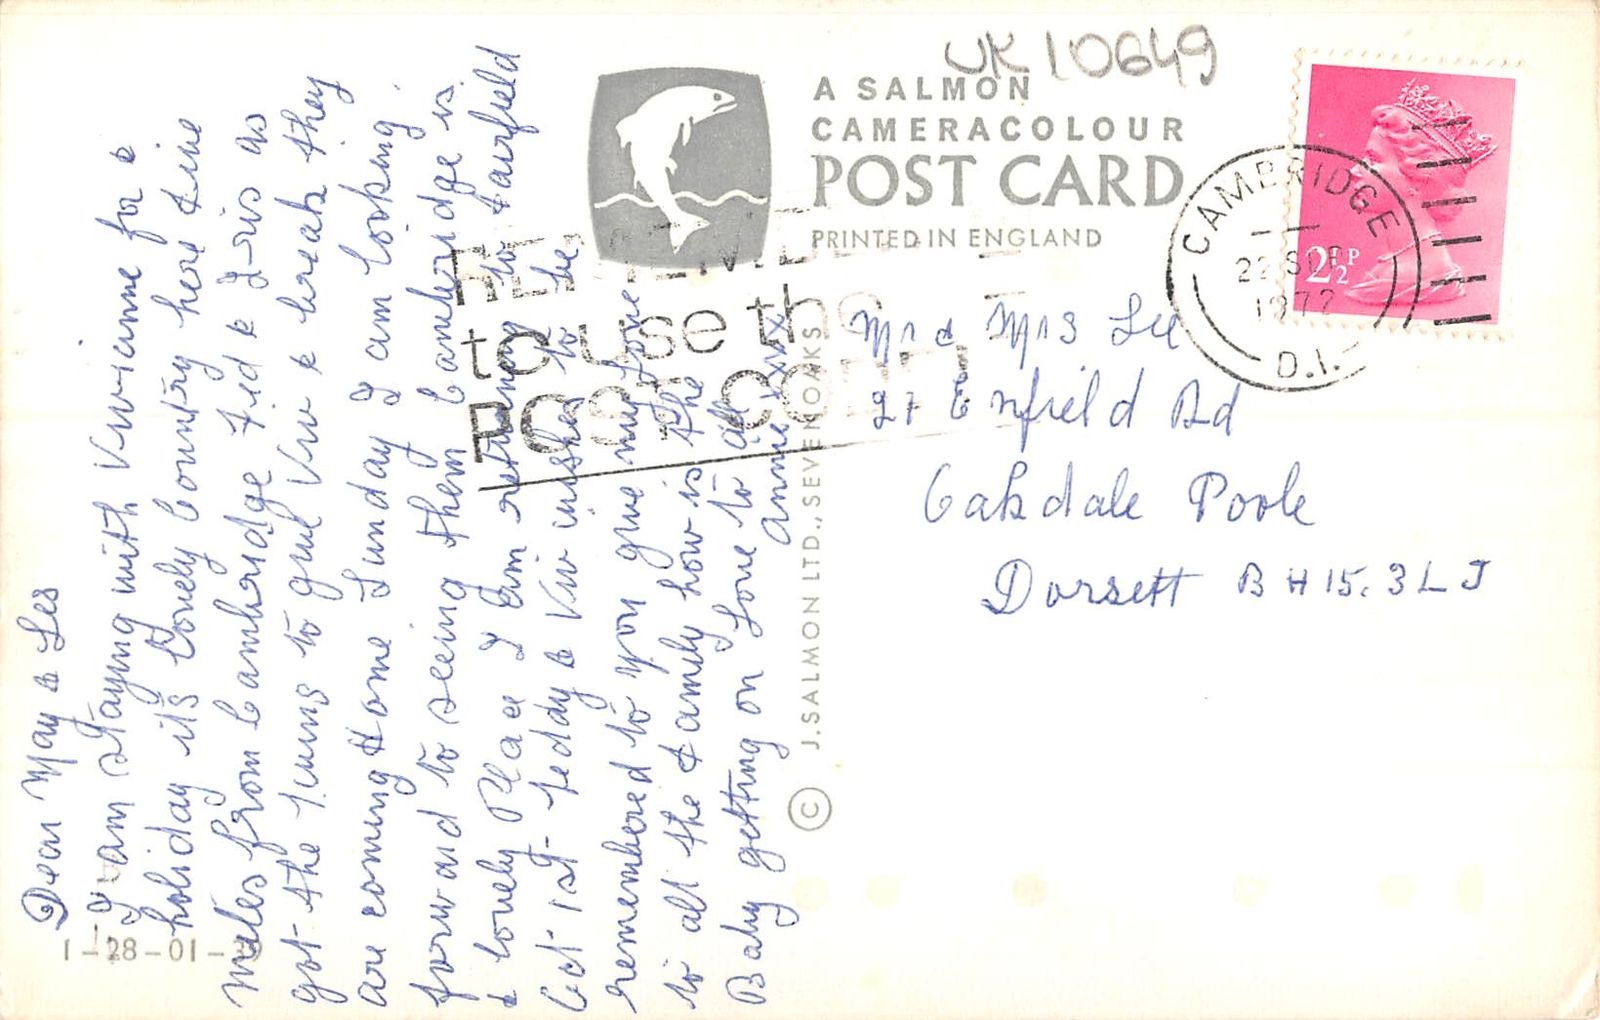 UK 10649
A SALMON
CAMERACOLOUR
POST CARD
PRINTED IN ENGLAND
CAMBRIDGE
22 SEP
1972
D.I.
2½P
REMEMBER
to use the
POST CODE
Mr & Mrs Lee
27 Enfield Rd
Oakdale Poole
Dorsett BH15. 3LJ
Dear May & Les
I am staying with Vivianne for a
holiday its lovely country here nine
miles from Cambridge Sid & Iris as
got the twins to give Viv a break they
are coming Home Sunday I am looking
forward to seeing them Cambridge is
a lovely Place I am returning to Fairfield
Oct 1st - Teddy & Viv wishes to be
remembered to you give my love
to all the family how is the
Baby getting on Love to all
Anne xxx
© J. SALMON LTD., SEVENOAKS
1-28-01-